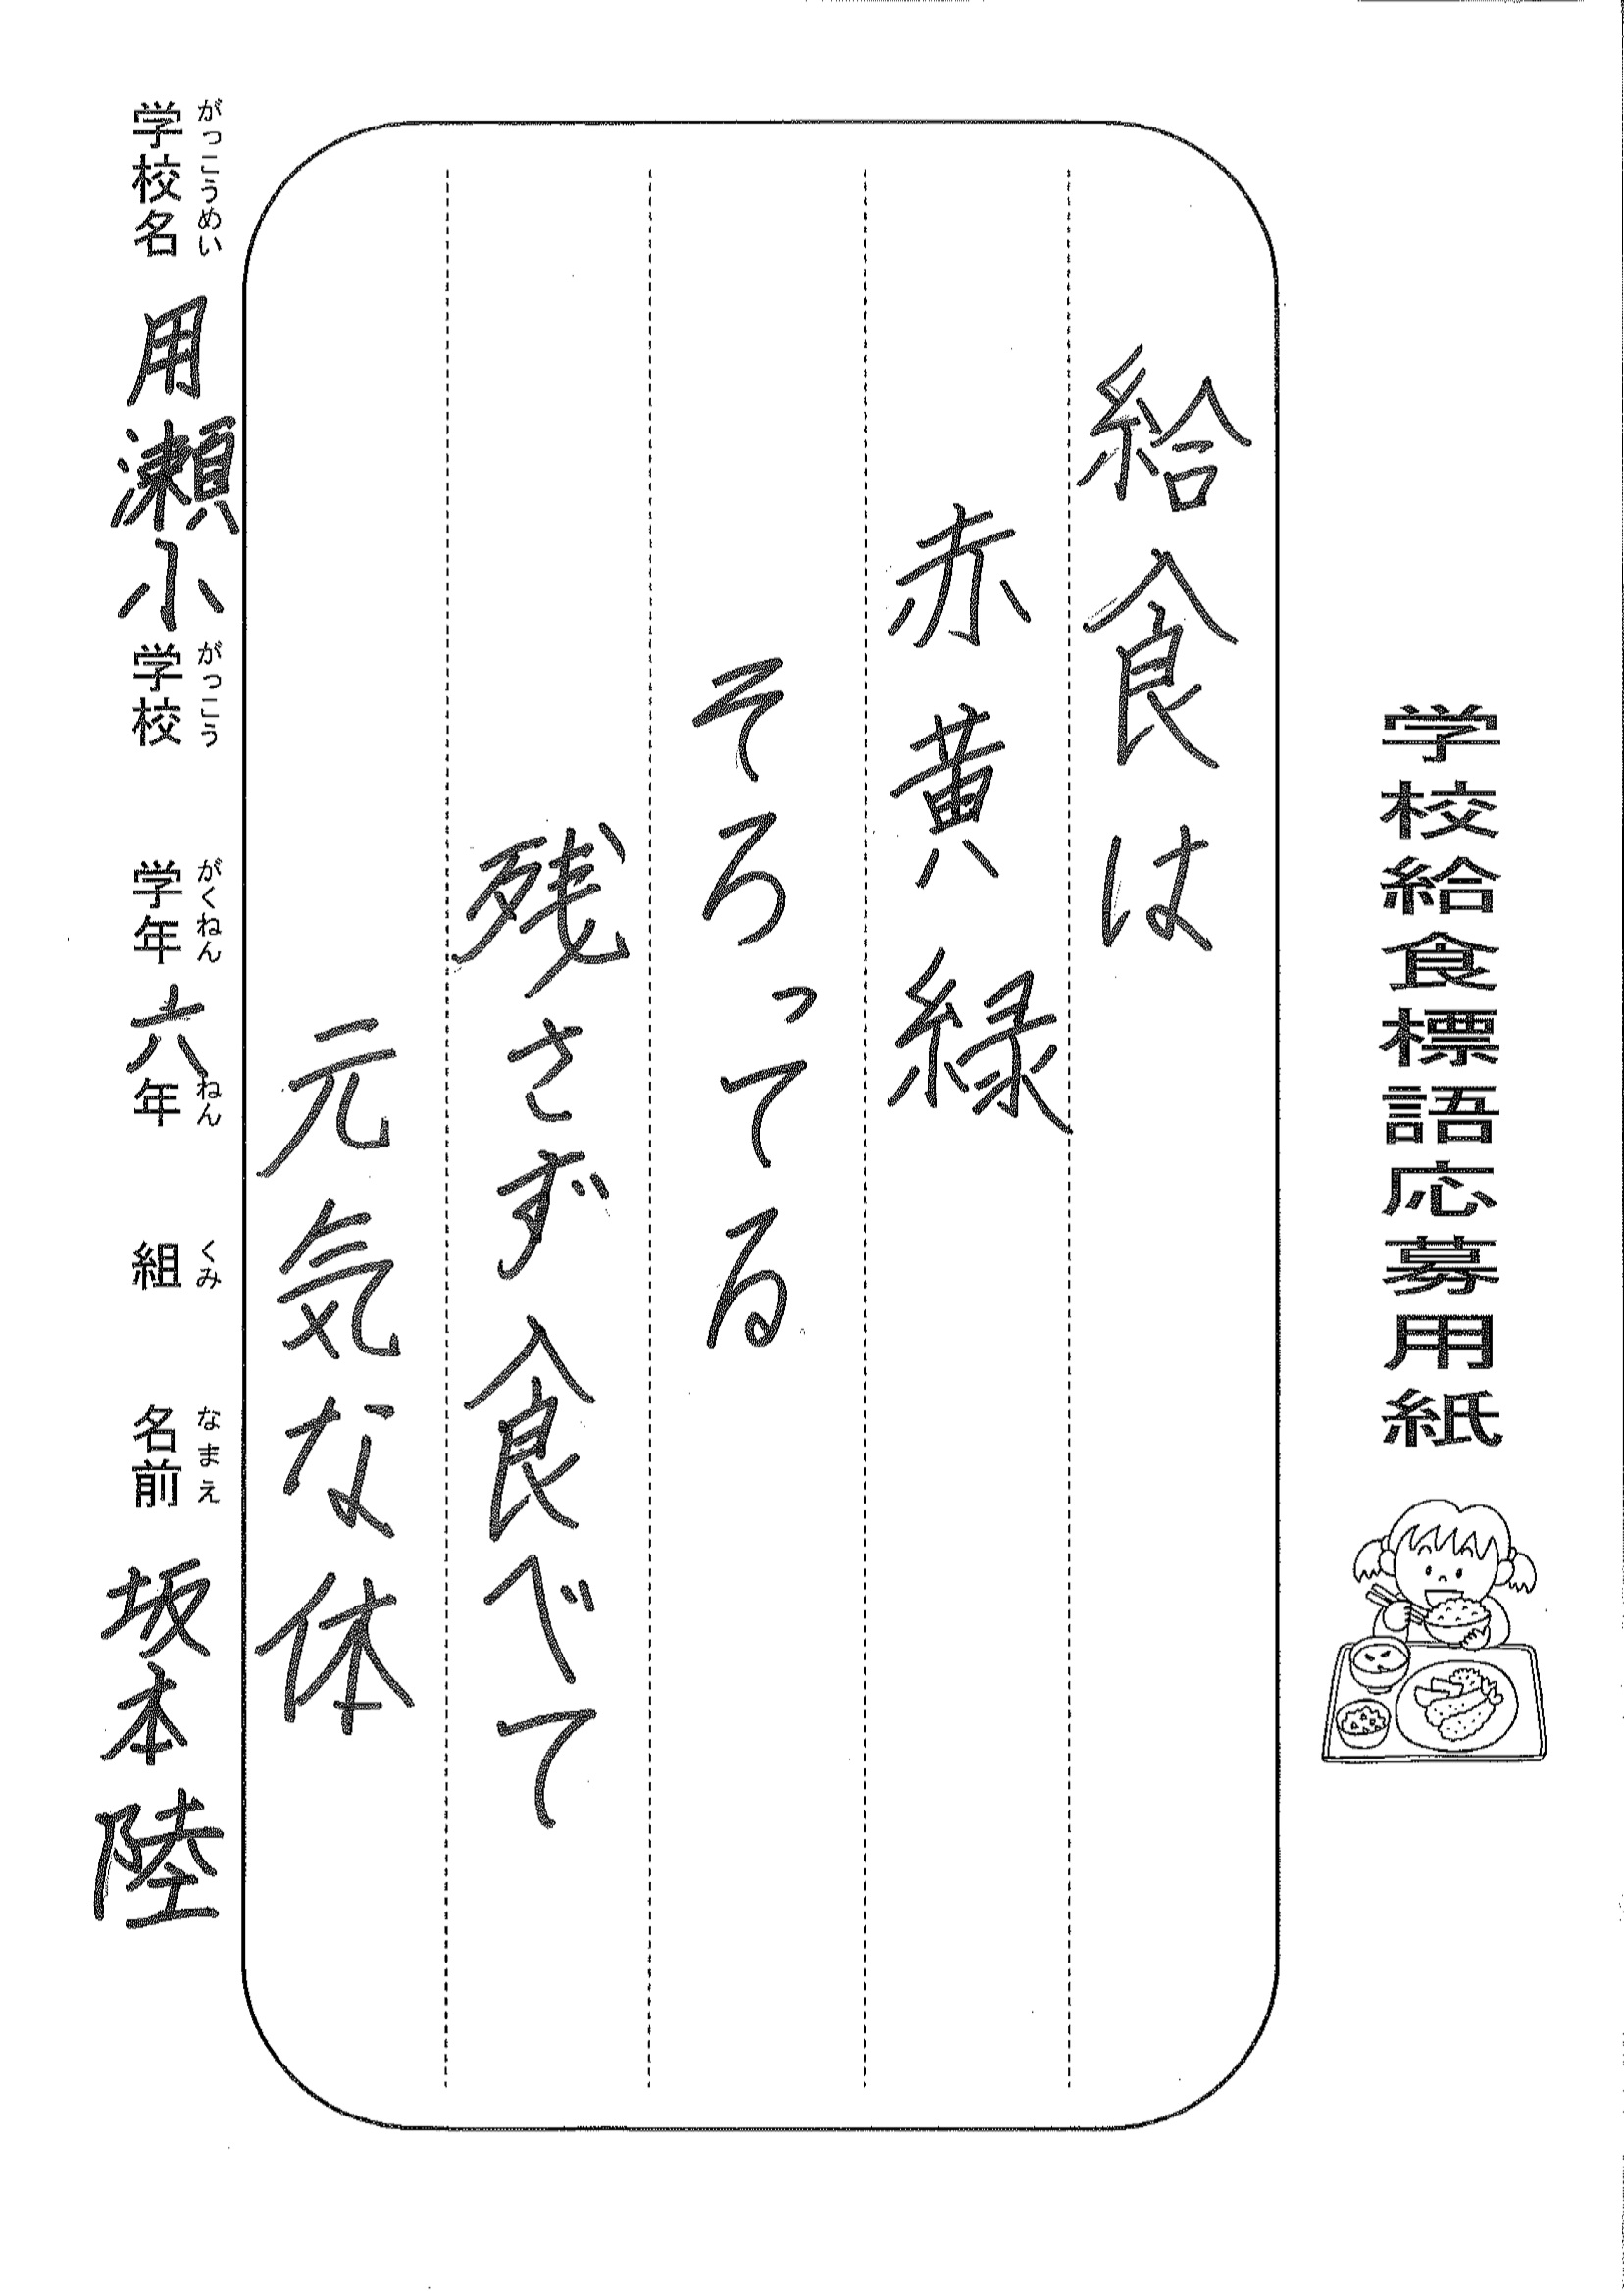 学校給食標語応募用紙
給食は
赤黄緑
そろってる
残さず食べて
元気な体
がっこうめい がっこう がくねん ねん くみ なまえ
学校名 用瀬小学校 学年 六年 組 名前 坂本 陸